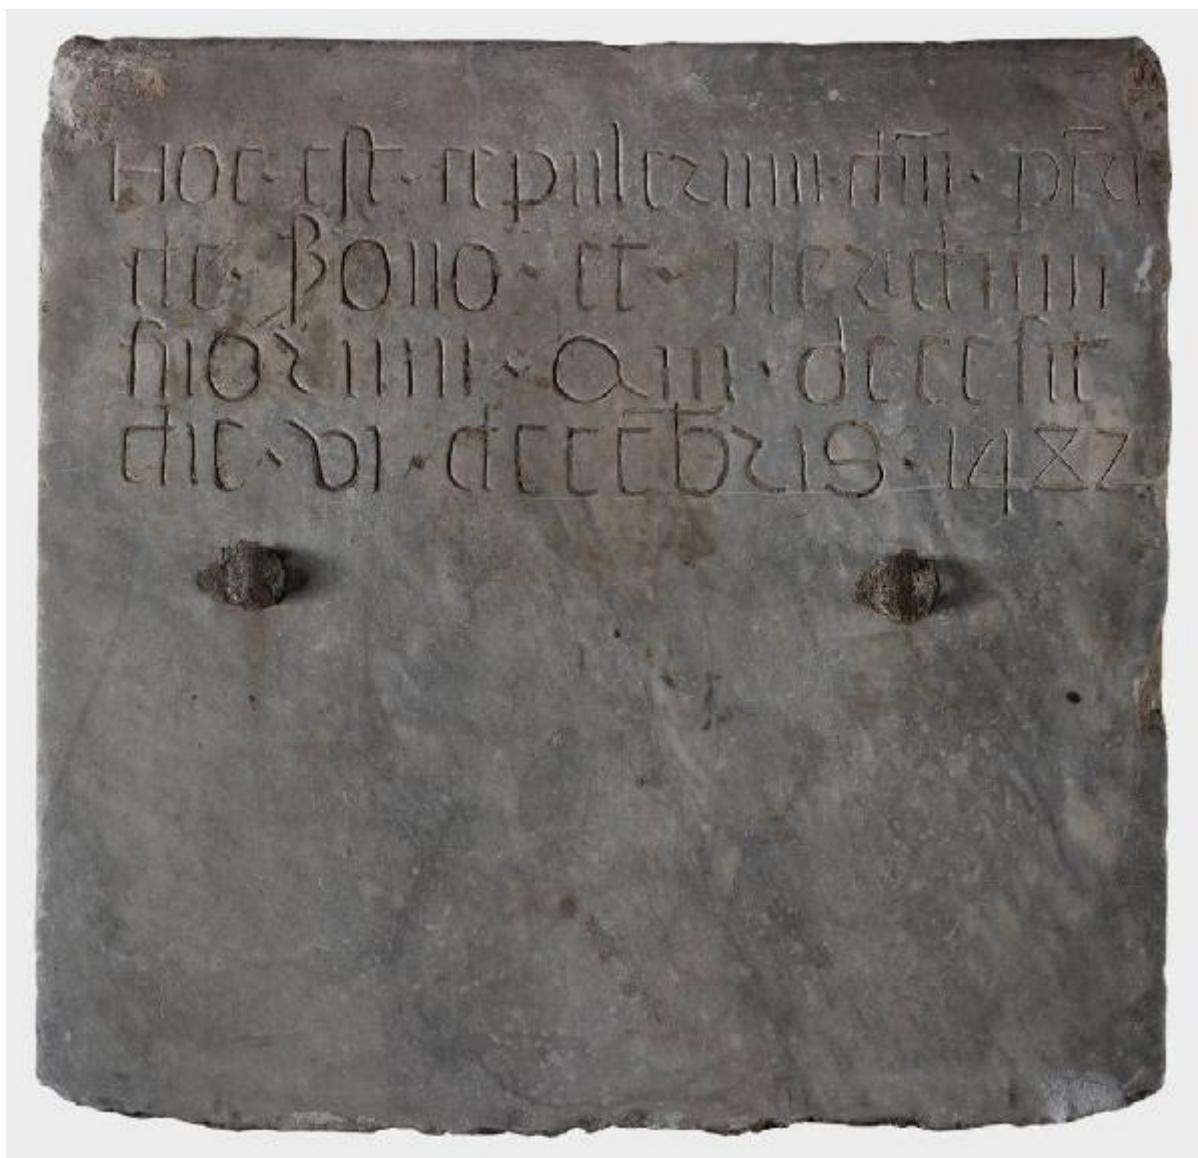 Hoc · est · cepulcrum · dm̄i · pet̄ri
de · Bono · et · heredum
suor̄um · Qui · decesit
die · VI · decēbris · 1482